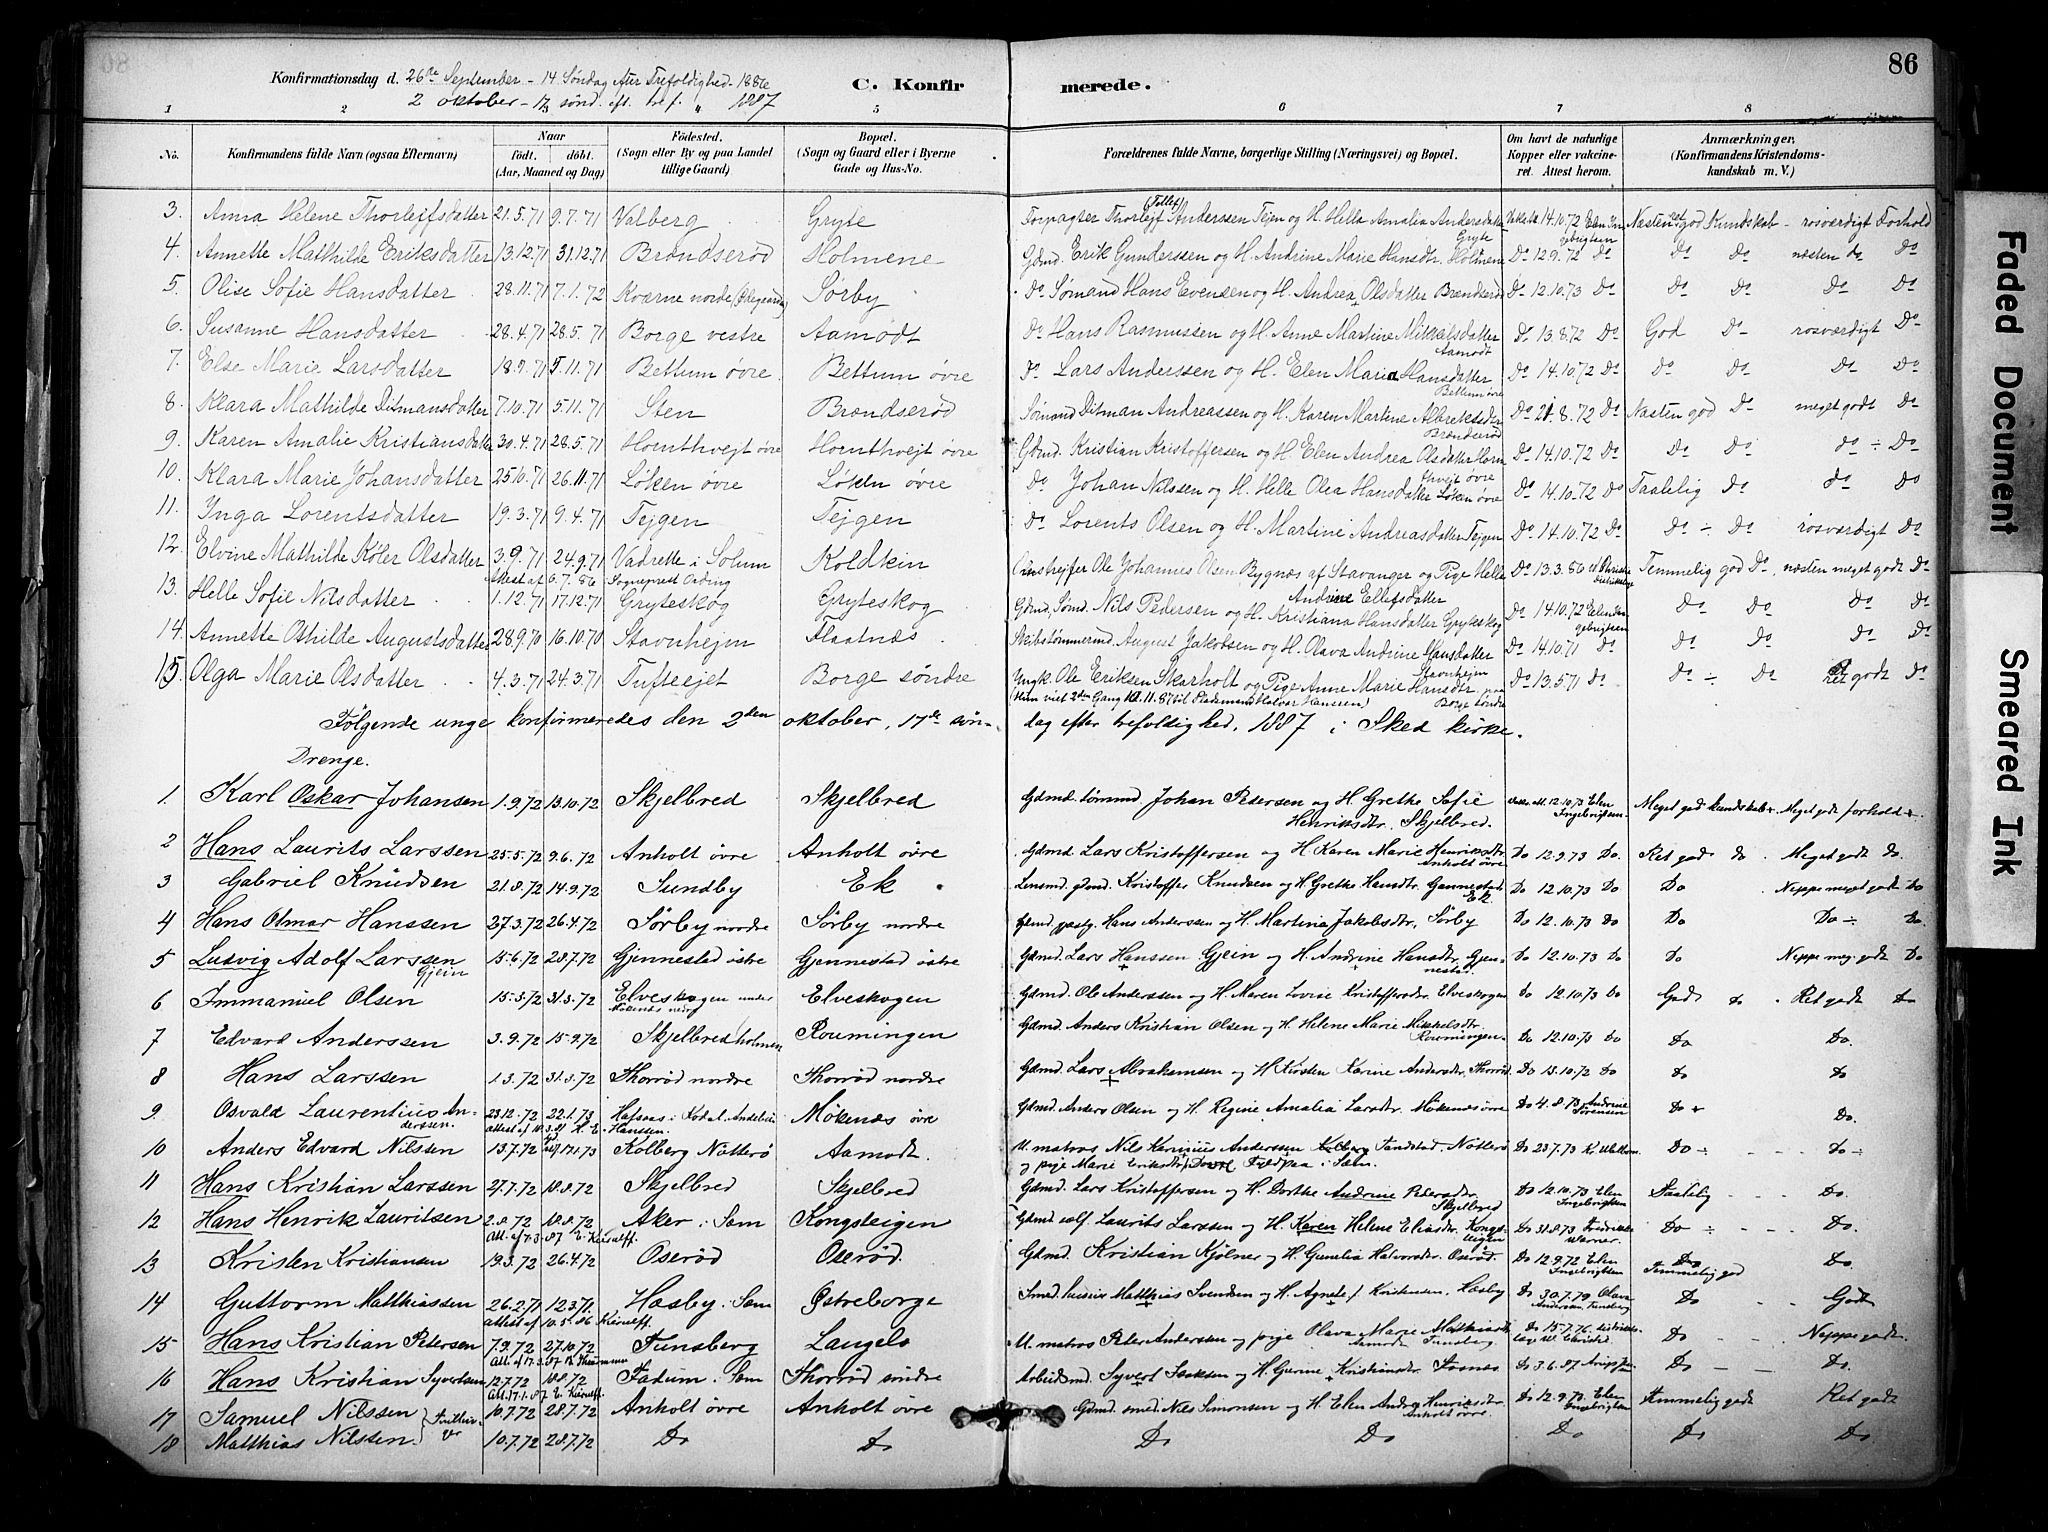 86
Konfirmationsdag d. 26de September - 14 Søndag efter Trefoldighed - 1886
2 oktober - 17 sønd. eft. tref. " 1887
C. Konfirmerede.
1 2 3 5 6 7 8
No. Konfirmandens fulde Navn (ogsaa Efternavn) Naar födt. döbt. (Aar, Maaned og Dag) Födested. (Sogn eller By og paa Landet tillige Gaard) Bopæl. (Sogn og Gaard eller i Byerne Gade og Hus-No. Forældrenes fulde Navne, borgerlige Stilling (Næringsvei) og Bopæl. Om havt de naturlige Kopper eller vakcineret. Attest herom. Anmærkninger. (Konfirmandens Kristendomskundskab m. V.)
3. Anna Helene Thorleifsdatter 21.5.71 9.7.71 Valberg Gryte Forpagter Thorleif Anderssen Tejen og H. Helle Amalia Andersdatter Gryte 14.10.72 Næsten god Kundskab - rosværdigt Forhold
4. Annette Mathilde Eriksdatter 13.12.71 31.12.71 Brøndserød Holmene Gdmd. Erik Gunderssen og H. Andrine Marie Hansdtr. Holmene Do 12.9.72 Do Do Do næsten do Do
5. Olise Sofie Hansdatter 28.11.71 7.1.72 Kværne nordre Sørby Do Sømand Hans Evensen og H. Andrea Olsdatter Brøndserød Do 12.10.73 Do Do Do Do Do
6. Susanne Hansdatter 28.4.71 28.5.71 Borge vestre Aamodt Do Hans Rasmussen og H. Anne Martine Mikkelsdatter Aamodt Do 13.8.72 Do God Do rosværdigt Do
7. Else Marie Larsdatter 18.9.71 5.11.71 Bettum øvre Bettum øvre Do Lars Anderssen og H. Elen Maria Hansdatter Bettum øvre Do 14.10.72 Do Do Do Do Do
8. Klara Mathilde Ditmansdatter 7.10.71 5.11.71 Sten Brøndserød Sømand Ditman Andreassen og H. Karen Martine Albrektsdtr Brøndserød Do 21.8.72 Do Næsten god Do meget godt Do
9. Karen Amalie Kristiansdatter 30.4.71 28.5.71 Hornthvejt øvre Hornthvejt øvre Gdmd. Kristian Kristoffersen og H. Elen Andrea Olsdatter Hornthvejt øvre Do 14.10.72 Do Do Do Do ÷ Do
10. Klara Marie Johansdatter 25.10.71 26.11.71 Løken øvre Løken øvre Do Johan Nilssen og H. Helle Olea Hansdatter Løken øvre Do 14.10.72 Do Taalelig Do Do Do
11. Inga Lorentsdatter 19.3.71 9.4.71 Tejgen Tejgen Do Lorents Olsen og H. Martine Andreasdatter Tejgen Do 14.10.72 Do Do ÷ Do rosværdigt Do
12. Elvine Mathilde Køler Olsdatter 3.9.71 24.9.71 Vadrette i Solum Koldkin Ole Johannes Olsen Bygnæs af Stavanger og Pige Helle Andrine Ellefsdatter Do 13.3.86 Temmelig god Do næsten meget godt Do
Attest af 6.7.86 Sogneprest Ording
13. Helle Sofie Nilsdatter 1.12.71 17.12.71 Gryteskog Gryteskog Gdmd. Sømd. Nils Pedersen og H. Kristiana Hansdatter Gryteskog Do 14.10.72 Do Do Do Do
14. Annette Othilde Augustsdatter 28.9.70 16.10.70 Stavnhejm Flaatnæs Skibstømmermd. August Jakobsen og H. Olava Andrine Hansdatter Stavnhejm Do 14.10.71 Do Do Do Do Do
15. Olga Marie Olsdatter 4.3.71 24.3.71 Tufteejet Borge søndre Ungk. Ole Eriksen Skarholt og Pige Anne Marie Hansdtr. paa Borge søndre Do 13.5.71 Do Do ÷ Do ret godt Do
Følgende unge konfirmeredes den 2den oktober, 17de søndag efter trefoldighed, 1887 i Sked kirke.
Drenge.
1. Karl Oskar Johansen 1.9.72 13.10.72 Skjelbred Skjelbred Gdmd. tømmd Johan Pedersen og H. Grethe Sofie Henriksdtr. Skjelbred. 12.10.73 Elen Ingebrigtsen. Meget god kundskab Meget godt forhold
2 Hans Laurits Larssen 25.5.72 9.6.72 Anholt øvre Anholt øvre Gdmd. Lars Kristoffersen og H Karen Marie Henriksdtr. Anholt øvre Do 12.9.73 Do. Ret god do Meget godt do.
3 Gabriel Knudsen 21.8.72 14.9.72 Sundby Ek Kristoffer Knudsen og H. Grethe Hansdtr. Gjennestad Ek Do 12.10.73 Do Do Neppe meget godt Do
4 Hans Otmar Hanssen 27.3.72 26.4.72 Sørby nordre Sørby nordre Gdmd. Hans Anderssen og H. Martina Jakobsdtr. Sørby Do 12.10.73 Do Do Do ÷ Do
5 Ludvig Adolf Larssen Gjein 15.6.72 28.7.72 Gjennestad östre Gjennestad östre Gdmd. Lars Hanssen Gjein og H. Andrine Hansdtr. Gjennestad Do 12.10.73 Do Do Neppe meg. godt Do
6 Immanuel Olsen 15.3.72 31.3.72 Elveskogen under Elveskogen Gdmd. Ole Anderssen og H. Maren Lovise Kristoffersdtr. Elveskogen Do 12.10.73 Do God do Ret godt do
7 Edvard Anderssen 3.9.72 15.9.72 Skjelbredholmen Roumingen Gdmd. Anders Kristian Olsen og H. Helene Marie Mikkelsdtr. Roumingen. Do 12.10.73 Do Do Do.
8 Hans Larssen 1.3.72 31.3.72 Thorrød nordre Thorrød nordre Gdmd. Lars Abrahamsen og H Kirsten Karine Andersdtr. Thorrød Do 13.10.72 Do Do Do
9 Osvald Laurentius Anderssen. 23.12.72 22.1.73 Møkenæs övre Gdmd. Anders Olsen og H. Regine Amalia Larsdtr. Møkenæs övre Do 4.8.73 Andrine Sørensen Do Do.
10 Anders Edvard Nilssen 13.7.72 17.1.73 Kolberg Nötterö Aamodt. U. matros Nils Karinius Anderssen Sandstad, Nötterö og pige Marie Eriksdtr. Do 23.7.73 Do ÷ Do ÷
11 Hans Kristian Larssen 27.7.72 18.8.72 Skjelbred Skjelbred Gdmd. Lars Kristoffersen og H. Dorthe Andrine Pedersdtr. Skjelbred Do 12.10.73 Elen Ingebrigtsen Taalelig Do.
12 Hans Henrik Lauritsen 2.8.72 18.8.72 Aker i Sem Kongsteigen Gdmd. Laurits Larssen og H. Karen Helene Eliasdtr. Kongsteigen Do 31.8.73 Do ÷ Do.
13 Kristen Kristiansen 19.3.72 26.4.72 Oserød Oserød. Gdmd. Kristian Kjölner og H. Gunelia Halvorsdtr. Oserød. Do 12.9.72 Elen Ingebrigtsen Do Do.
14 Guttorm Matthiassen 26.2.71 12.3.71. Hæsby i Sem Østreborge Smed. Matthias Svendsen og H. Agnete Kristensen. Hæsby Do 30.7.79 Olava Andersen, Tunsberg Temmelig god Do Godt
15 Hans Kristian Petersen 7.9.72 27.10.72 Tunsberg Langelo U. matros Peter Anderssen og pige Olava Marie Matthiasdtr. Tunsberg Do 15.7.76 Do Neppe godt.
16 Hans Kristian Syvertsen 12.7.72 18.8.72 Fadum i Sem Thorrød söndre Arbeidsmd. Syvert Isaksen og H. Gurine Kristiansdtr. Do 3.6.87 Do Do.
17 Samuel Nilssen 10.7.72 28.7.72 Anholt övre Anholt övre Gdmd. smed. Nils Simonsen og H. Elen Andrea Henriksdtr. Anholt övre Do 12.9.73 Elen Ingebrigtsen Temmelig godt Ret godt
18 Matthias Nilssen. 10.7.72 28.7.72 Do Do Do Do Do Do Do.
Faded Document
Smeared Ink